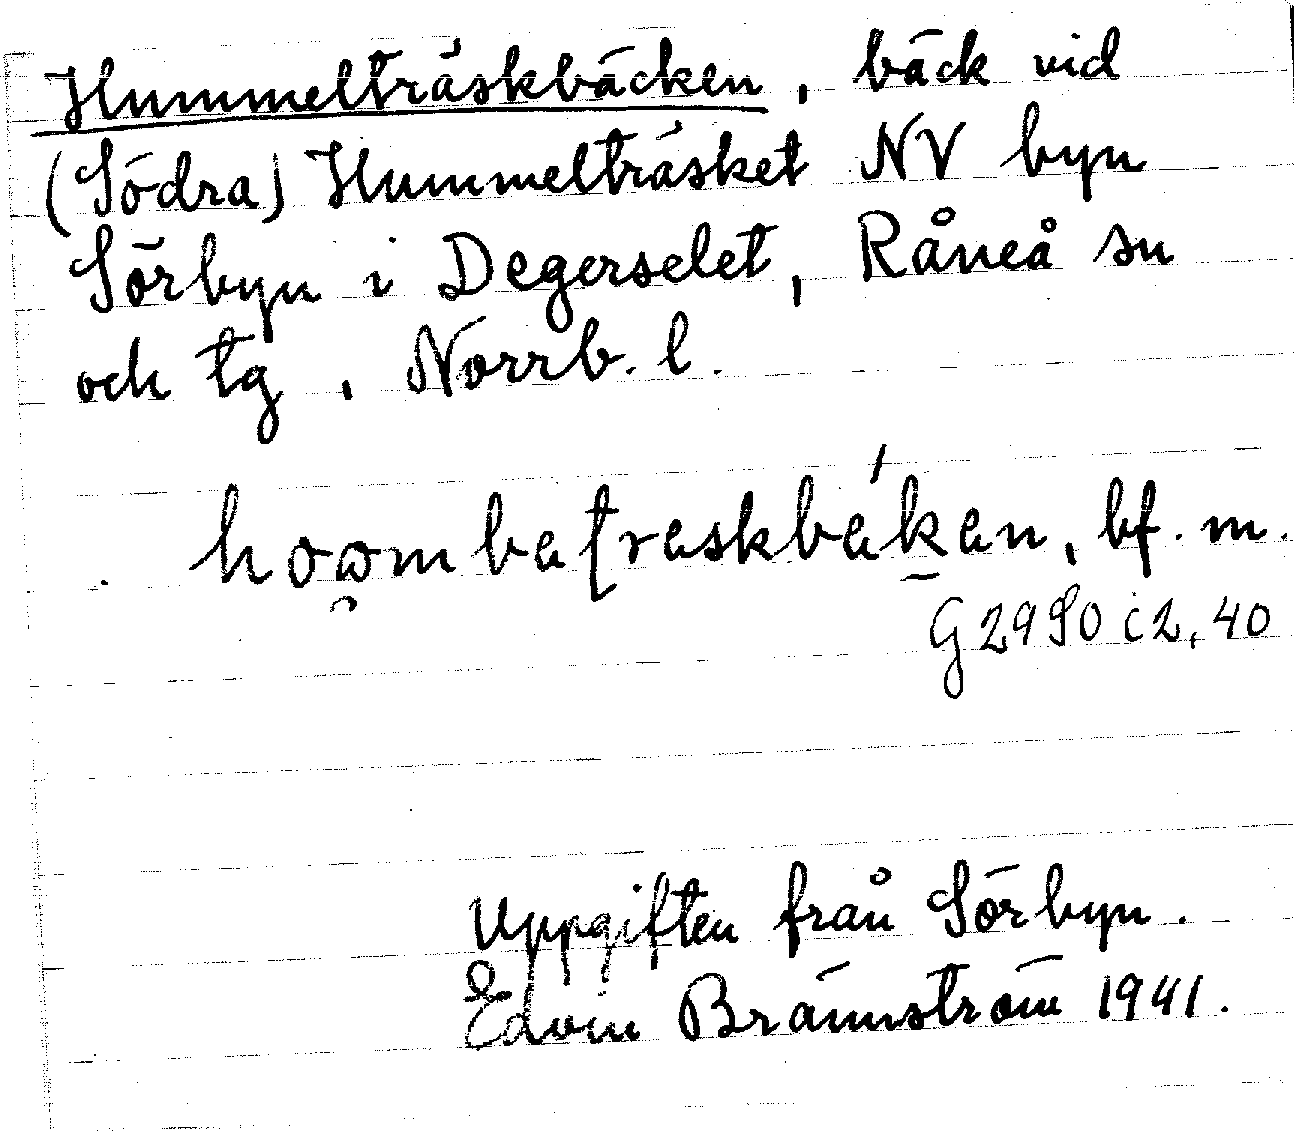 Hummelträskbäcken, bäck vid
(Södra) Hummelträsket NV byn
Sörbyn i Degerselet, Råneå sn
och tg, Norrb. l.
bf. m.
40
Uppgiften från Sörbyn.
Edvin Brännström 1941.